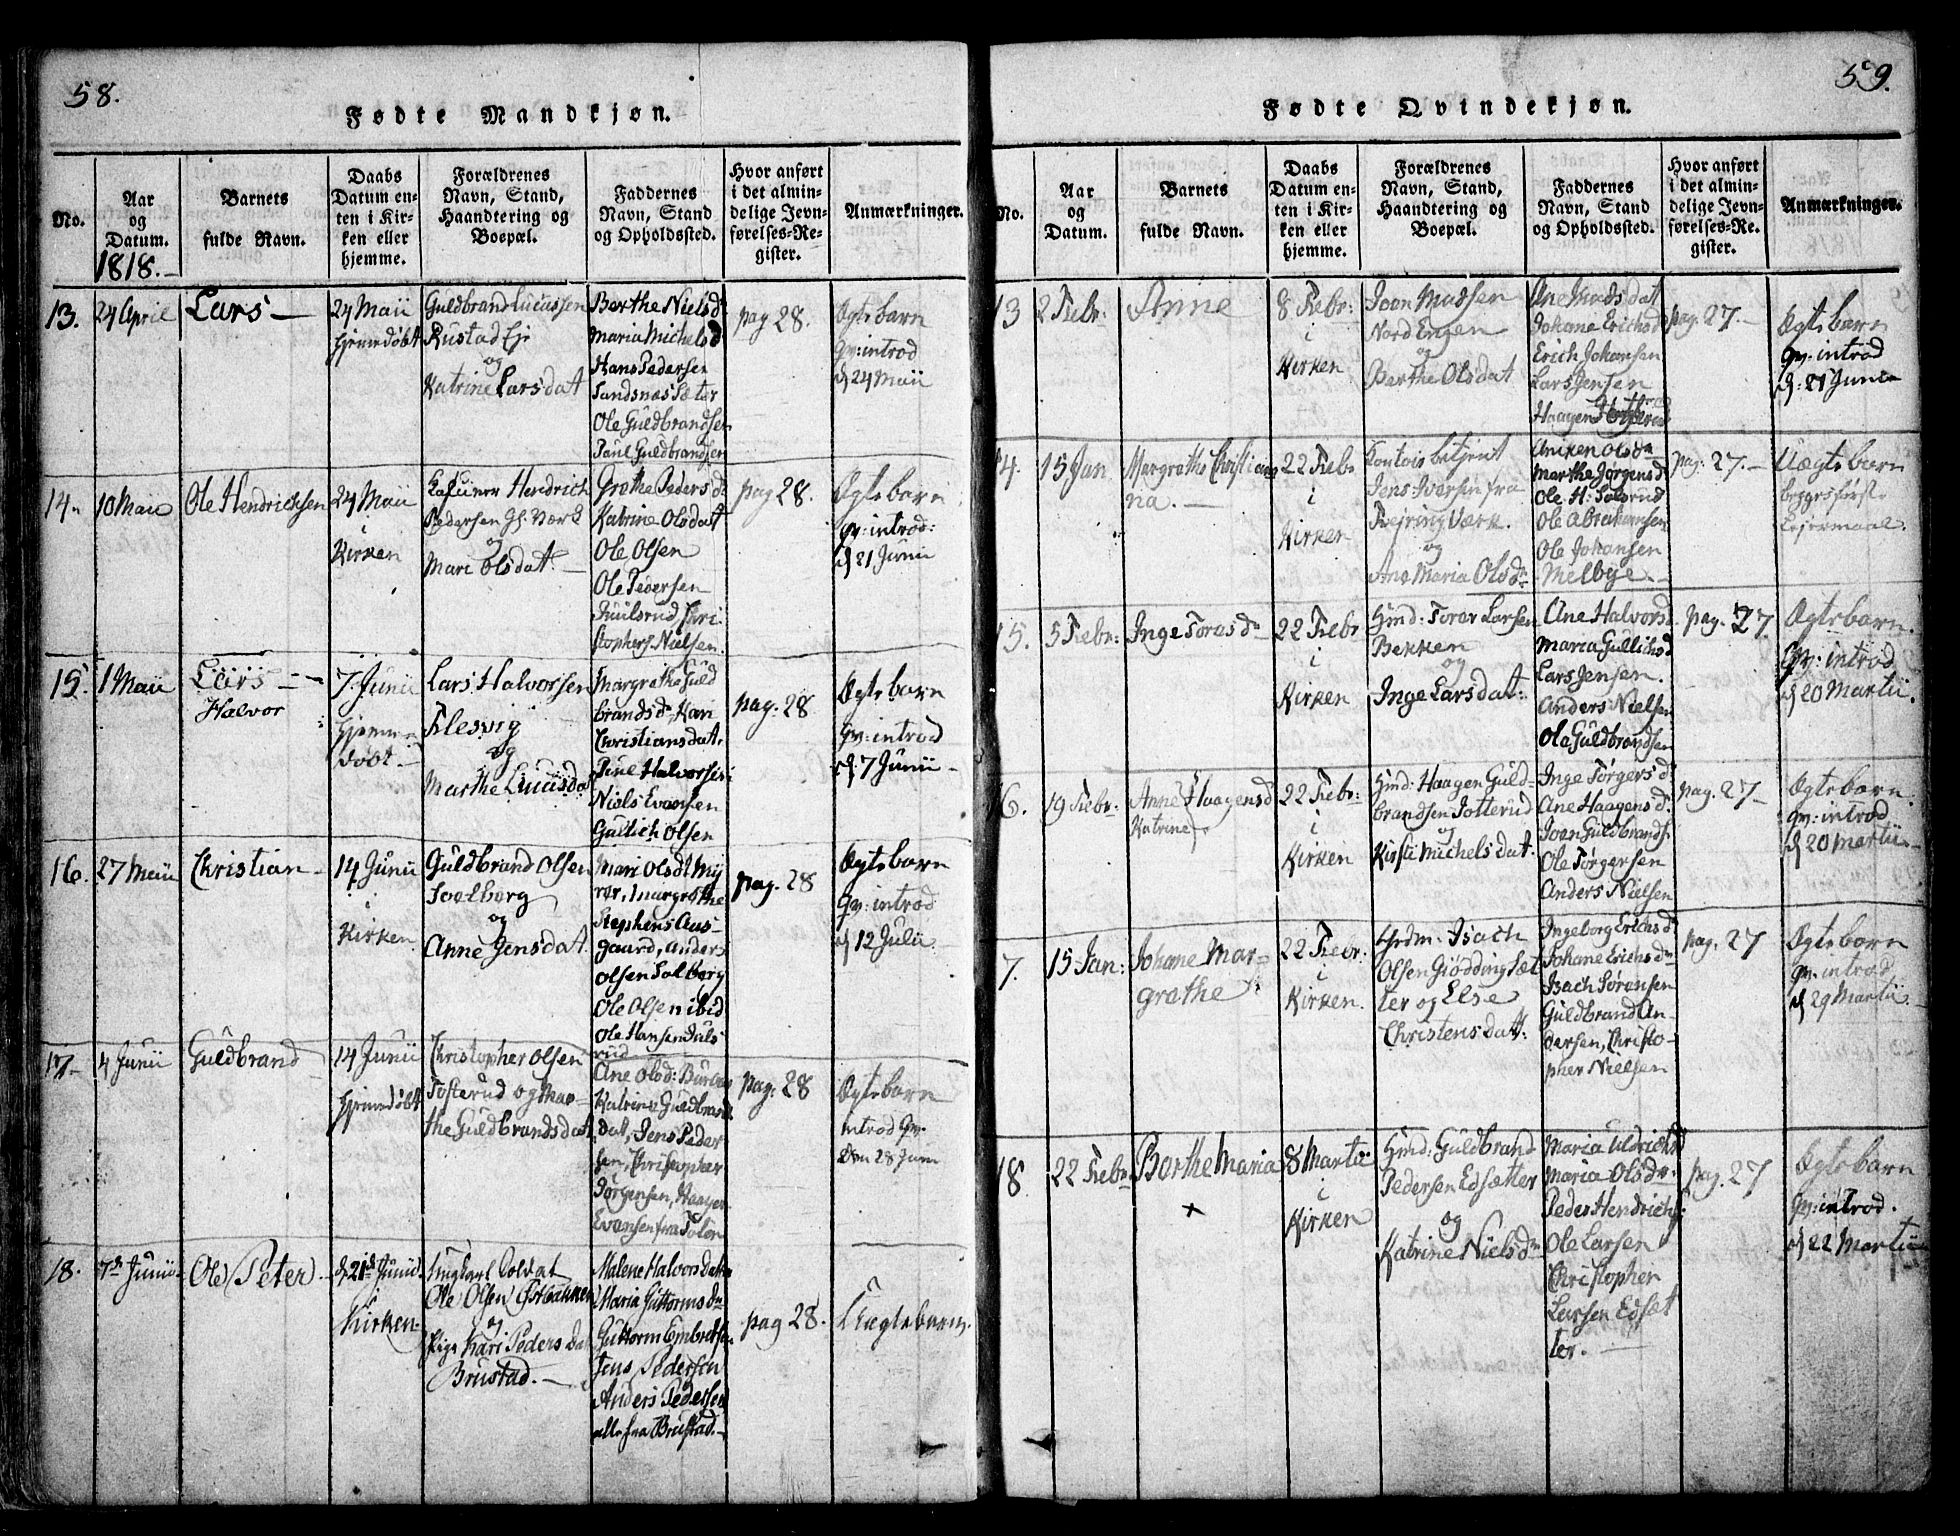 58.
Fødte Mandkjøn.
No.
Aar og Datum.
Barnets fulde Navn.
Daabs Datum enten i Kirken eller hjemme.
Forældrenes Navn, Stand, Haandtering og Boepæl.
Faddernes Navn, Stand og Opholdssted.
Hvor anført i det almindelige Jevnførelses-Register.
Anmærkninger.
1818.
13.
24 April
Lars
24 Maii
hjemedøbt
Guldbrand Lucassen
Rustad Eje
og
Katrine Larsdat
Berthe Nielsd
Maria Michelsd
Hans Pedersen
Sandsnæs Sæter
Ole Guldbrandsen
Paul Guldbrandsen
pag 28.
Ægtebarn
Qv: introd
d 24 Maii
14.
10 Maii
Ole Hendrichsen
24 Maii
i
Kirken
Hendrich
Pedersen
og
Mari Olsdat.
Grethe Pedersd:
Katrine Olsdat
Ole Olsen
Ole Pedersen
Juulsrud, Chri
stophers Nielsen.
pag 28.
Ægtebarn
Qv: introd:
d 21 Junii
15.
1 Maii
Lars
Halvor
7. Junii
hjemme
døbt.
Lars Halvorsen
Flesvig
og
Marthe Lucasda
Margrethe Guld
brandsd: Kari
Christiansdat.
Paul Halvorsen
Niels Evansen
Gullich Olsen
pag: 28
Ægtebarn
Qv: introd
d: 7 Junii
16.
27 Maii
Christian
14 Junii
i
Kirken
Guldbrand Olsen
Soelberg
og
Anne Jensdat.
Mari Olsdt My
rer, Margrethe
Stephens Aas
gaard, Anders
Olsen Solberg
Ole Olsen ibid
Ole Hansen Juls
rud
pag. 28
Ægtebarn
Qv: introd
d 12 Julii
17.
4 Junii
Guldbrand
14 Junii
hjemedøbt
Christopher Olsen
Tosterud og Mar
the Guldbrandsdat
Ane Olsd:
Katrine Guldbrands
dat, Jens Peder
sen, Christopher
Jørgensen, Haagen
Evansen fra
pag: 28
Ægtebarn
introd Qv.
den 28 Juni
18.
7de Junii
Ole Peter
d. 21de Junii
i
Kirken
Ungkarl Soldat
Ole Olsen
og
Pige Kari Peders da
Brustad.
Malene Halvorsdatter
Maria Guttormsd
Guttorm Embretsen
Jens Pedersen
Anders Pedersen
alle fra Brustad.
pag 28.
Uægtebarn.
59.
Fødte Qvindekjøn.
No.
Aar og Datum.
Barnets fulde Navn.
Daabs Datum enten i Kirken eller hjemme.
Forældrenes Navn, Stand, Haandtering og Boepæl.
Faddernes Navn, Stand og Opholdssted.
Hvor anført i det almindelige Jevnførelses-Register.
Anmærkninger.
13
2 Febr:
Anne
8 Febr:
i
Kirken
Joon Madsen
Nord Engen
og
Berthe Olsdat
Ane Madsdat
Johane Erichsd
Erich Johansen
Lars Jensen
Haagen
pag. 27.
Ægtebarn
Qv: introd
d: 21 Junii
14.
15 Jan
Margrethe Christians
na.
22 Febr
i
Kirken
Contoir betjent
Jens Iversen fra
Fejring Værk.
og
Ane Maria Olsd
Aniken Olsd
Marthe Jørgensd
Ole H: Solsrud
Ole Abrahamsen
Ole Johansen
Melbye.
pag. 27.
Uægtebarn
begges første
Lejermaal.
15.
5 Febr:
Inge Torasd
22 Febr
i
Kirken
Hmd: Torer Larsen
Bekken
og
Inge Larsdat:
Ane Halvorsd
Maria Gullichsd
Lars Jensen.
Anders Nielsen
Ole Guldbrandsen
pag. 27.
Ægtebarn.
Qv: introd
d 20 Martii.
16.
19 Febr:
Anne Haagensd
Katrine
22 Febr:
i
Kirken
Hmd: Haagen Guld
brandsen Totterud
og
Kirsti Michelsdat.
Inge Tørgersd:
Ane Haagensd:
Joen Guldbrands.
Ole Tørgersen
Anders Nielsen
pag. 27
Ægtebarn.
Qv: introd
d 20 Martii
7.
15 Jan:
Johane Mar-
grethe
22 Febr:
i
Kirken.
Isach
Olsen Giødding Sæt
ter og Else
Christensdat.
Ingeborg Erichsd
Johane Erichsd
Isach Sørensen
Guldbrand An
dersen, Christo
pher Nielsen
pag. 27
Ægtebarn
Qv: introd
d 29 Martii
18
22 Febr
Berthe Maria
8 Martii
i
Kirken
Hmd: Guldbrand
Pedersen Edsætter
og
Katrine Nielsd
Maria Uldrichsd
Maria Olsd
Peder Hendrichs
Ole Larsen
Christopher
Larsen Edsæt
ter.
pag. 27
Ægtebarn
Qv: introd.
d 22 Martii